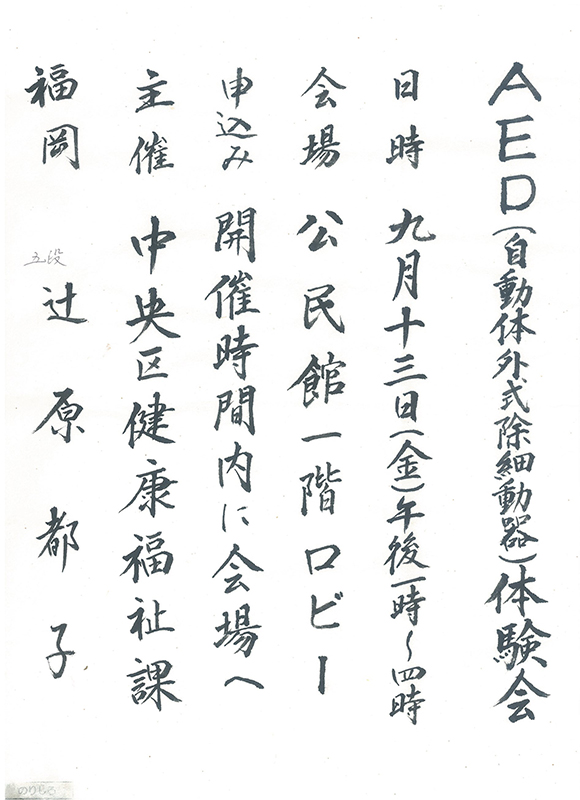 AED(自動体外式除細動器)体験会
日時 九月十三日(金)午後一時~四時
会場 公民館一階ロビー
申込み 開催時間内に会場へ
主催 中央区健康福祉課
福岡 五段 辻原都子